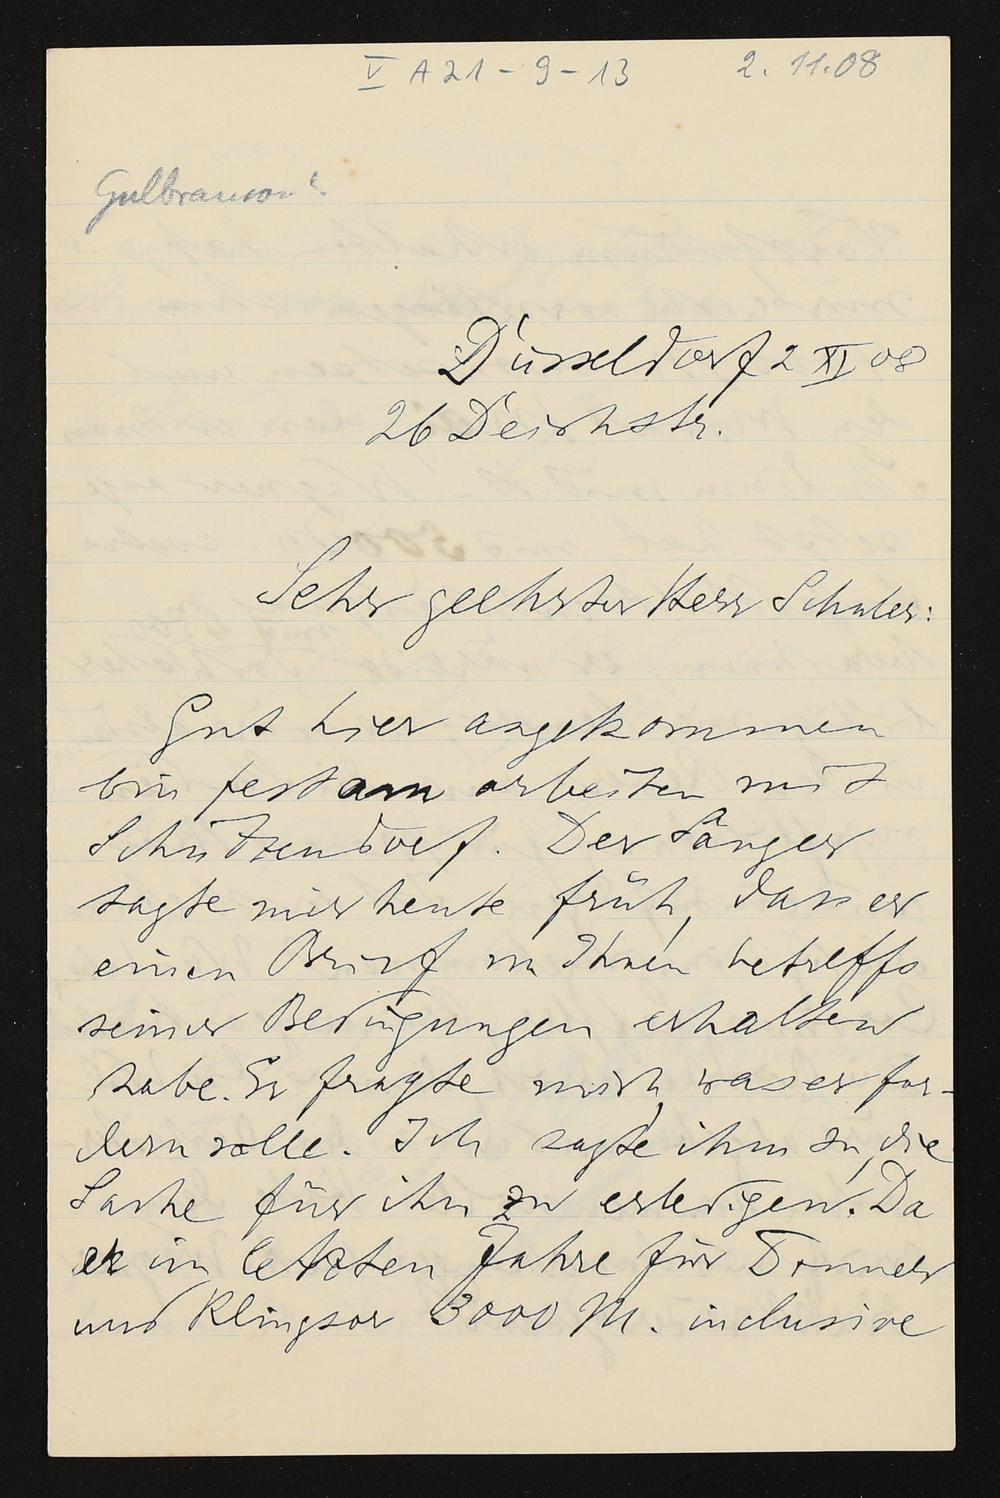 V A 21 - 9 - 13 2. 11. 08
Gulbranson?
Düsseldorf 2 XI 08
26 Deichstr.
Sehr geehrter Herr Schuler:
Gut hier angekommen
bin fest am arbeiten mit
Schützendorf. Der Sänger
sagte mir heute früh, dass er
einen Brief von Ihnen betreffs
seiner Bedingungen erhalten
habe. Er fragte mich, was er for-
dern solle. Ich sagte ihm zu, die
Sache für ihn zu erledigen. Da
er im letzten Jahre für Donner
und Klingsor 3000 M. inclusive